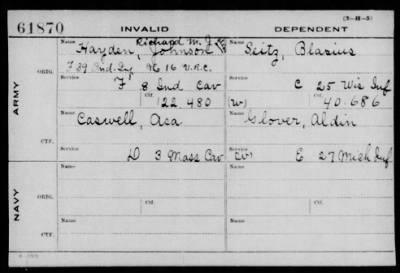 (3-H-5)
61870 INVALID DEPENDENT
Name Richard M. J.
Hayden, Johnson
Name
Seitz, Blasius
ORIG. F 39 Ind. Inf 16 V.R.C.
F 8 Ind Cav
C 25 Wis Inf
Ctf. 122 480
(W) Ctf. 40.686
ARMY
Name
Caswell, Asa
Name
Glover, Aldin
CTF. D 3 Mass Cav
(W) E 27 Mich Inf
Name
Name
ORIG.
Ctf.
Ctf.
NAVY
Name
Name
CTF.